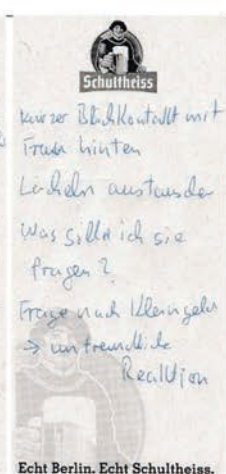 Schultheiss
kurzer Blickkontakt mit
Frau hinten
Lächeln austauschen
Was sollte ich sie
fragen?
Frage nach Kleingeld
→ unfreundliche
Reaktion
Echt Berlin. Echt Schultheiss.